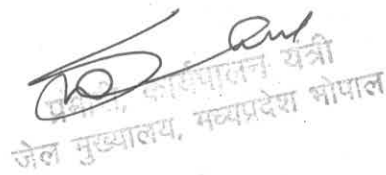 प्रभारी, कार्यपालन यंत्री
जेल मुख्यालय, मध्यप्रदेश भोपाल